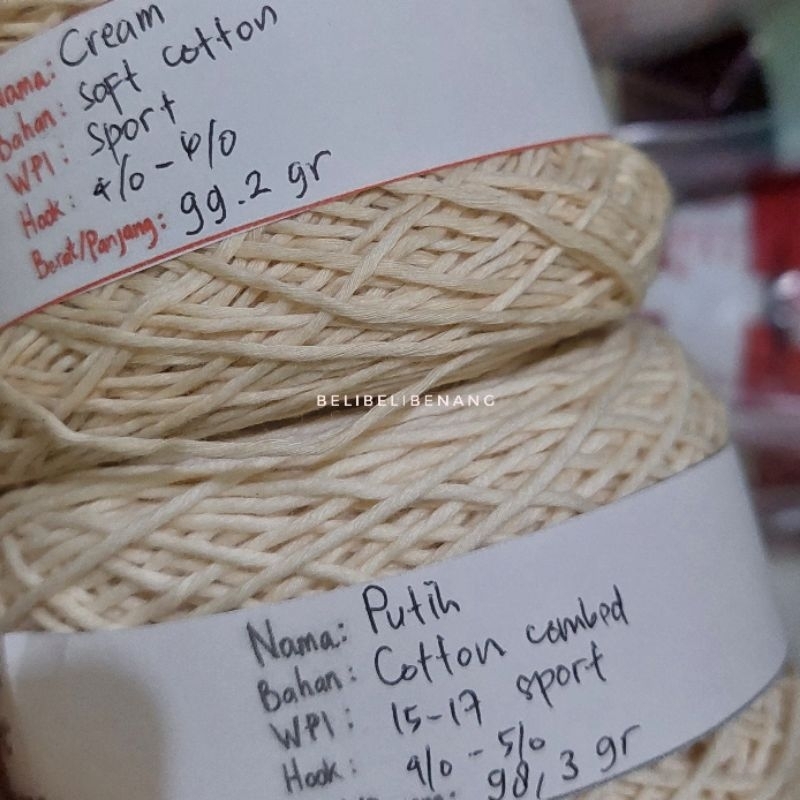 Nama: Cream
Bahan: soft cotton
WPI: sport
Hook: 4/0 - 4/0
Berat/Panjang: 99.2 gr
BELIBELIBENANG
Nama: Putih
Bahan: Cotton combed
WPI: 15-17 sport
Hook: 4/0 - 5/0
98,3 gr